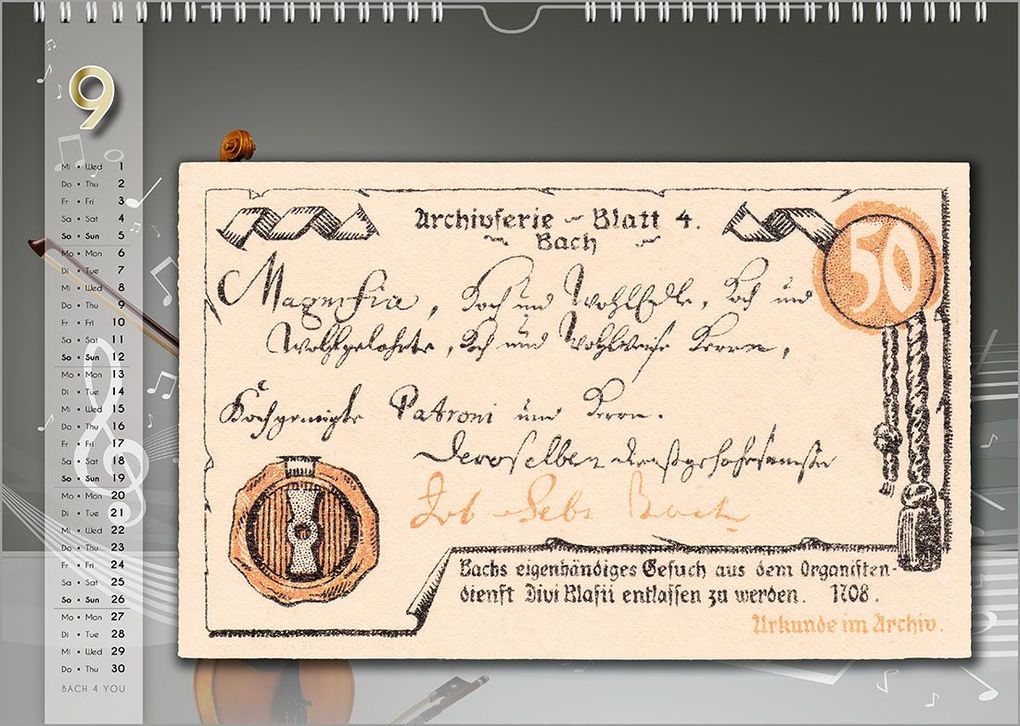 9
Mi • Wed 1
Do • Thu 2
Fr • Fri 3
Sa • Sat 4
So • Sun 5
Mo • Mon 6
Di • Tue 7
Mi • Wed 8
Do • Thu 9
Fr • Fri 10
Sa • Sat 11
So • Sun 12
Mo • Mon 13
Di • Tue 14
Mi • Wed 15
Do • Thu 16
Fr • Fri 17
Sa • Sat 18
So • Sun 19
Mo • Mon 20
Di • Tue 21
Mi • Wed 22
Do • Thu 23
Fr • Fri 24
Sa • Sat 25
So • Sun 26
Mo • Mon 27
Di • Tue 28
Mi • Wed 29
Do • Thu 30
BACH 4 YOU
Archivserie – Blatt 4.
Bach
50
Magnifice, Hoch und Wohl Edle, Hoch und
Wohlgelahrte, Hoch und Wohlweise Herren,
Hochgeneigte Patroni und Herren.
Deroselben dienstgehorsamster
Joh Sebs Bach
Bachs eigenhändiges Gesuch aus dem Organisten-
dienst Divi Blasii entlassen zu werden. 1708.
Urkunde im Archiv.